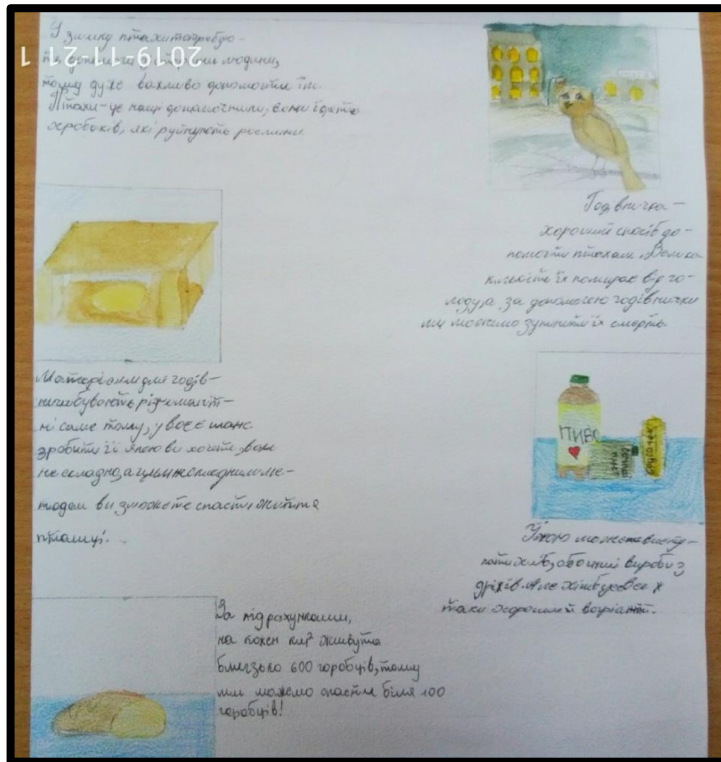 У зимку птахи потребу-
ть допомоги людини,
тому дуже важливо допомогти їм.
Птахи-це наші допомічники, вони їдять
хробаків, які руйнують рослини
2019-11-21 1
Годівничка-
хороший спосіб до-
помогти птахам. Велика
кількість їх помирає від го-
лоду, а за допомогою годівнички
ми можемо зупинити їх смерть.
Матеріали для годів-
нички бувають різноманіт-
ні саме тому, у вас є шанс
зробити її якою ви хочете, вона
не складна, а цим
тодом ви зможете спасти життя
птащі.
ПИВО
Їжою може виступ-
ати хліб, або інші вироби з
дріжджів
таки хороший варіант.
За підрахунками,
на кожен км² живуть
близько 600 горобців, тому
ми можемо спасти біля 100
горобців!